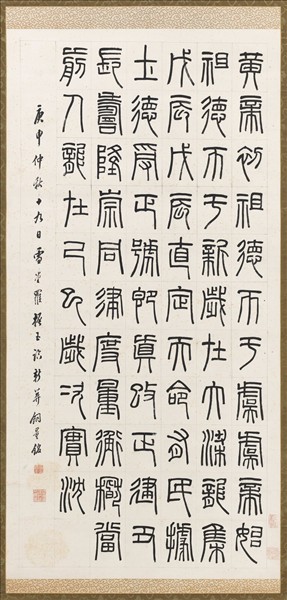 黃帝初祖德帀于虞虞帝始
祖德帀于新歲在大梁龍集
戊辰戊辰直定天命有民據
土德受正號即真改正建丑
長壽隆崇同律度量衡稽當
前人龍在己巳歲次實沈
庚申仲秋十九日雪堂羅振玉臨新莽銅量銘